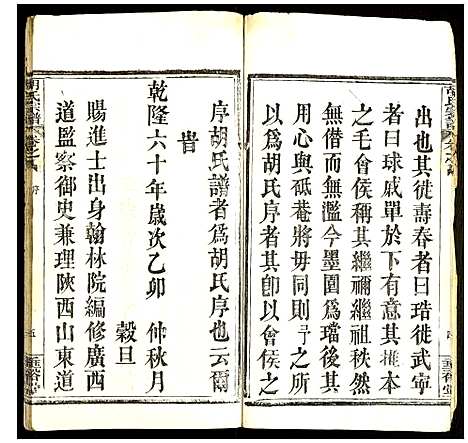 出也其徙壽春者曰琣徙武寧
者曰球戚單於下有意其推本
之毛會侯稱其繼禰繼祖秩然
無僭而無濫今墨園爲璫後其
用心與砥菴將毋同則予之序
以爲胡氏序者其卽以會侯之
序胡氏譜者爲胡氏序也云爾
旹
乾隆六十年歲次乙卯 仲秋月
穀旦
賜進士出身翰林院編修廣西
道監察御史兼理陝西山東道
胡氏宗譜